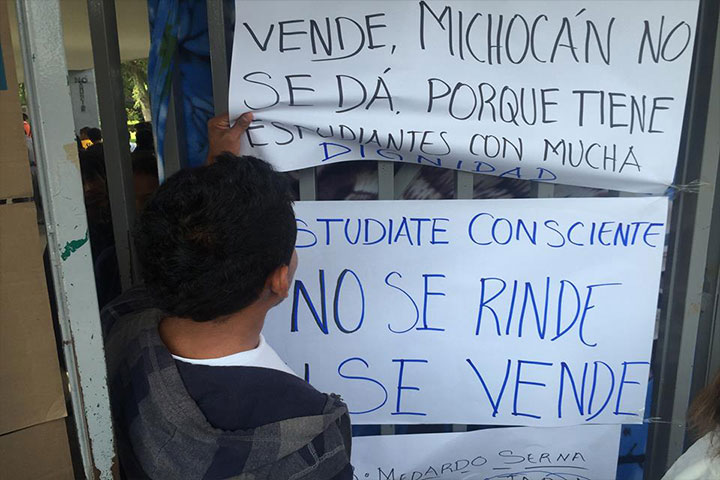 VENDE, MICHOCÁN NO
SE DÁ, PORQUE TIENE
ESTUDIANTES CON MUCHA
DIGNIDAD
STUDIATE CONSCIENTE
NO SE RINDE
I SE VENDE
MEDARDO SERNA